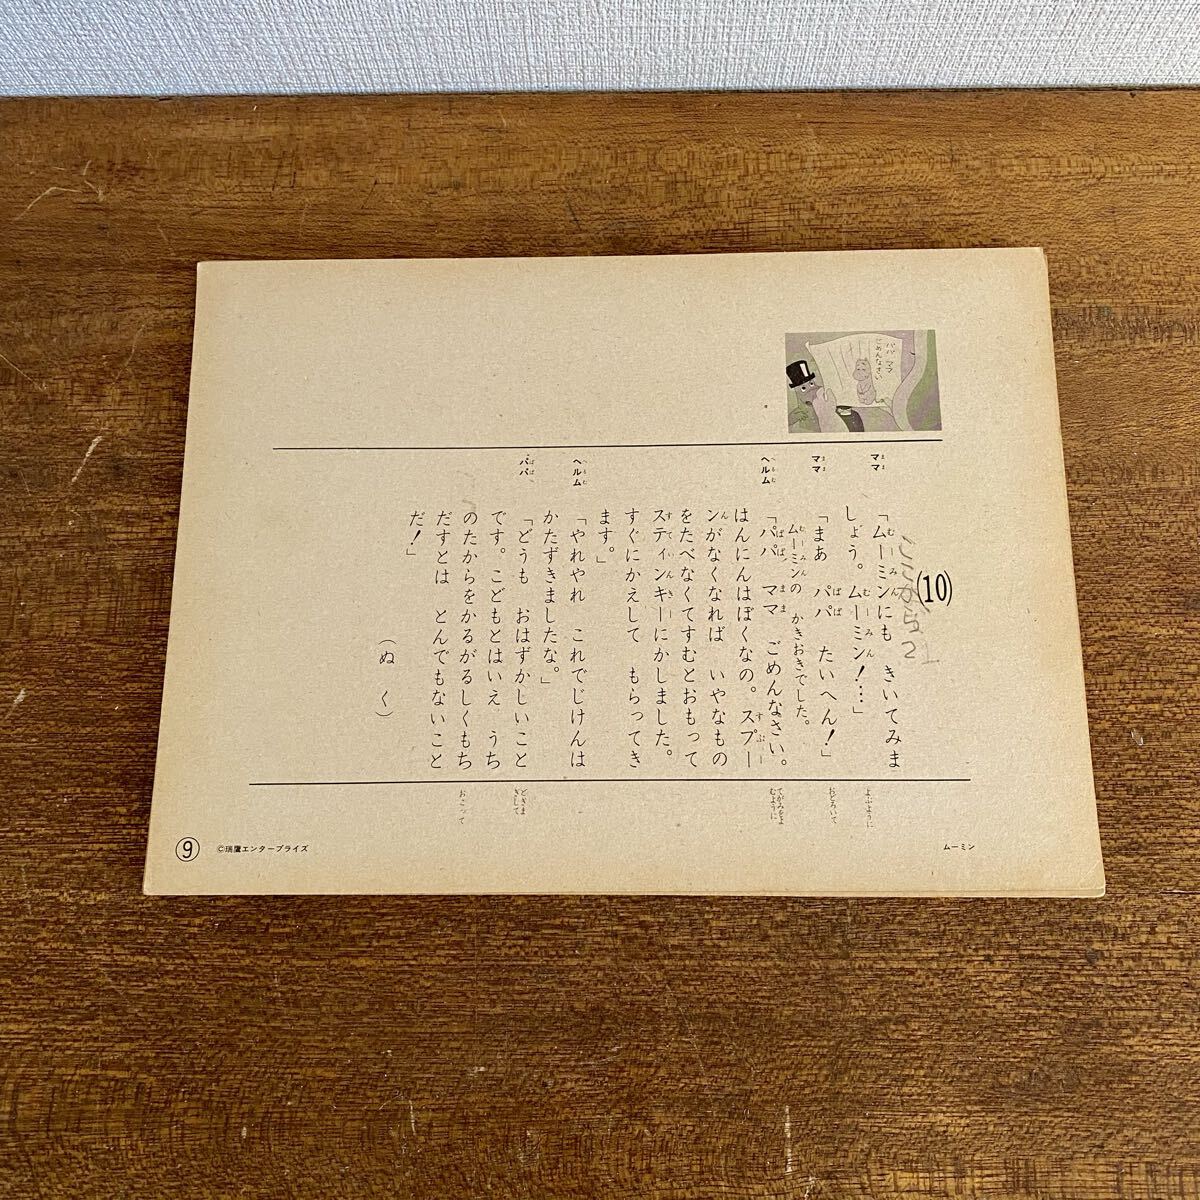 パパ ママ
ごめんなさい
(10)
ママ
「ムーミンにも きいてみま
しょう。 ムーミン!…」
ママ
「まあ パパ たいへん!」
ムーミンの かきおきでした。
ヘルム
「パパ ママ ごめんなさい。
はんにんはぼくなの。スプー
ンがなくなれば いやなもの
をたべなくてすむとおもって
スティンキーにかしました。
すぐにかえして もらってき
ます。」
ヘルム
「やれやれ これでじけんは
かたずきましたな。」
パパ
「どうも おはずかしいこと
です。こどもとはいえ うち
のたからをかるがるしくもち
だすとは とんでもないこと
だ!」
(ぬく)
よぶように
おどろいて
てがみをよ
むように
どぎま
ぎして
おこって
ムーミン
©瑞鷹エンタープライズ
⑨